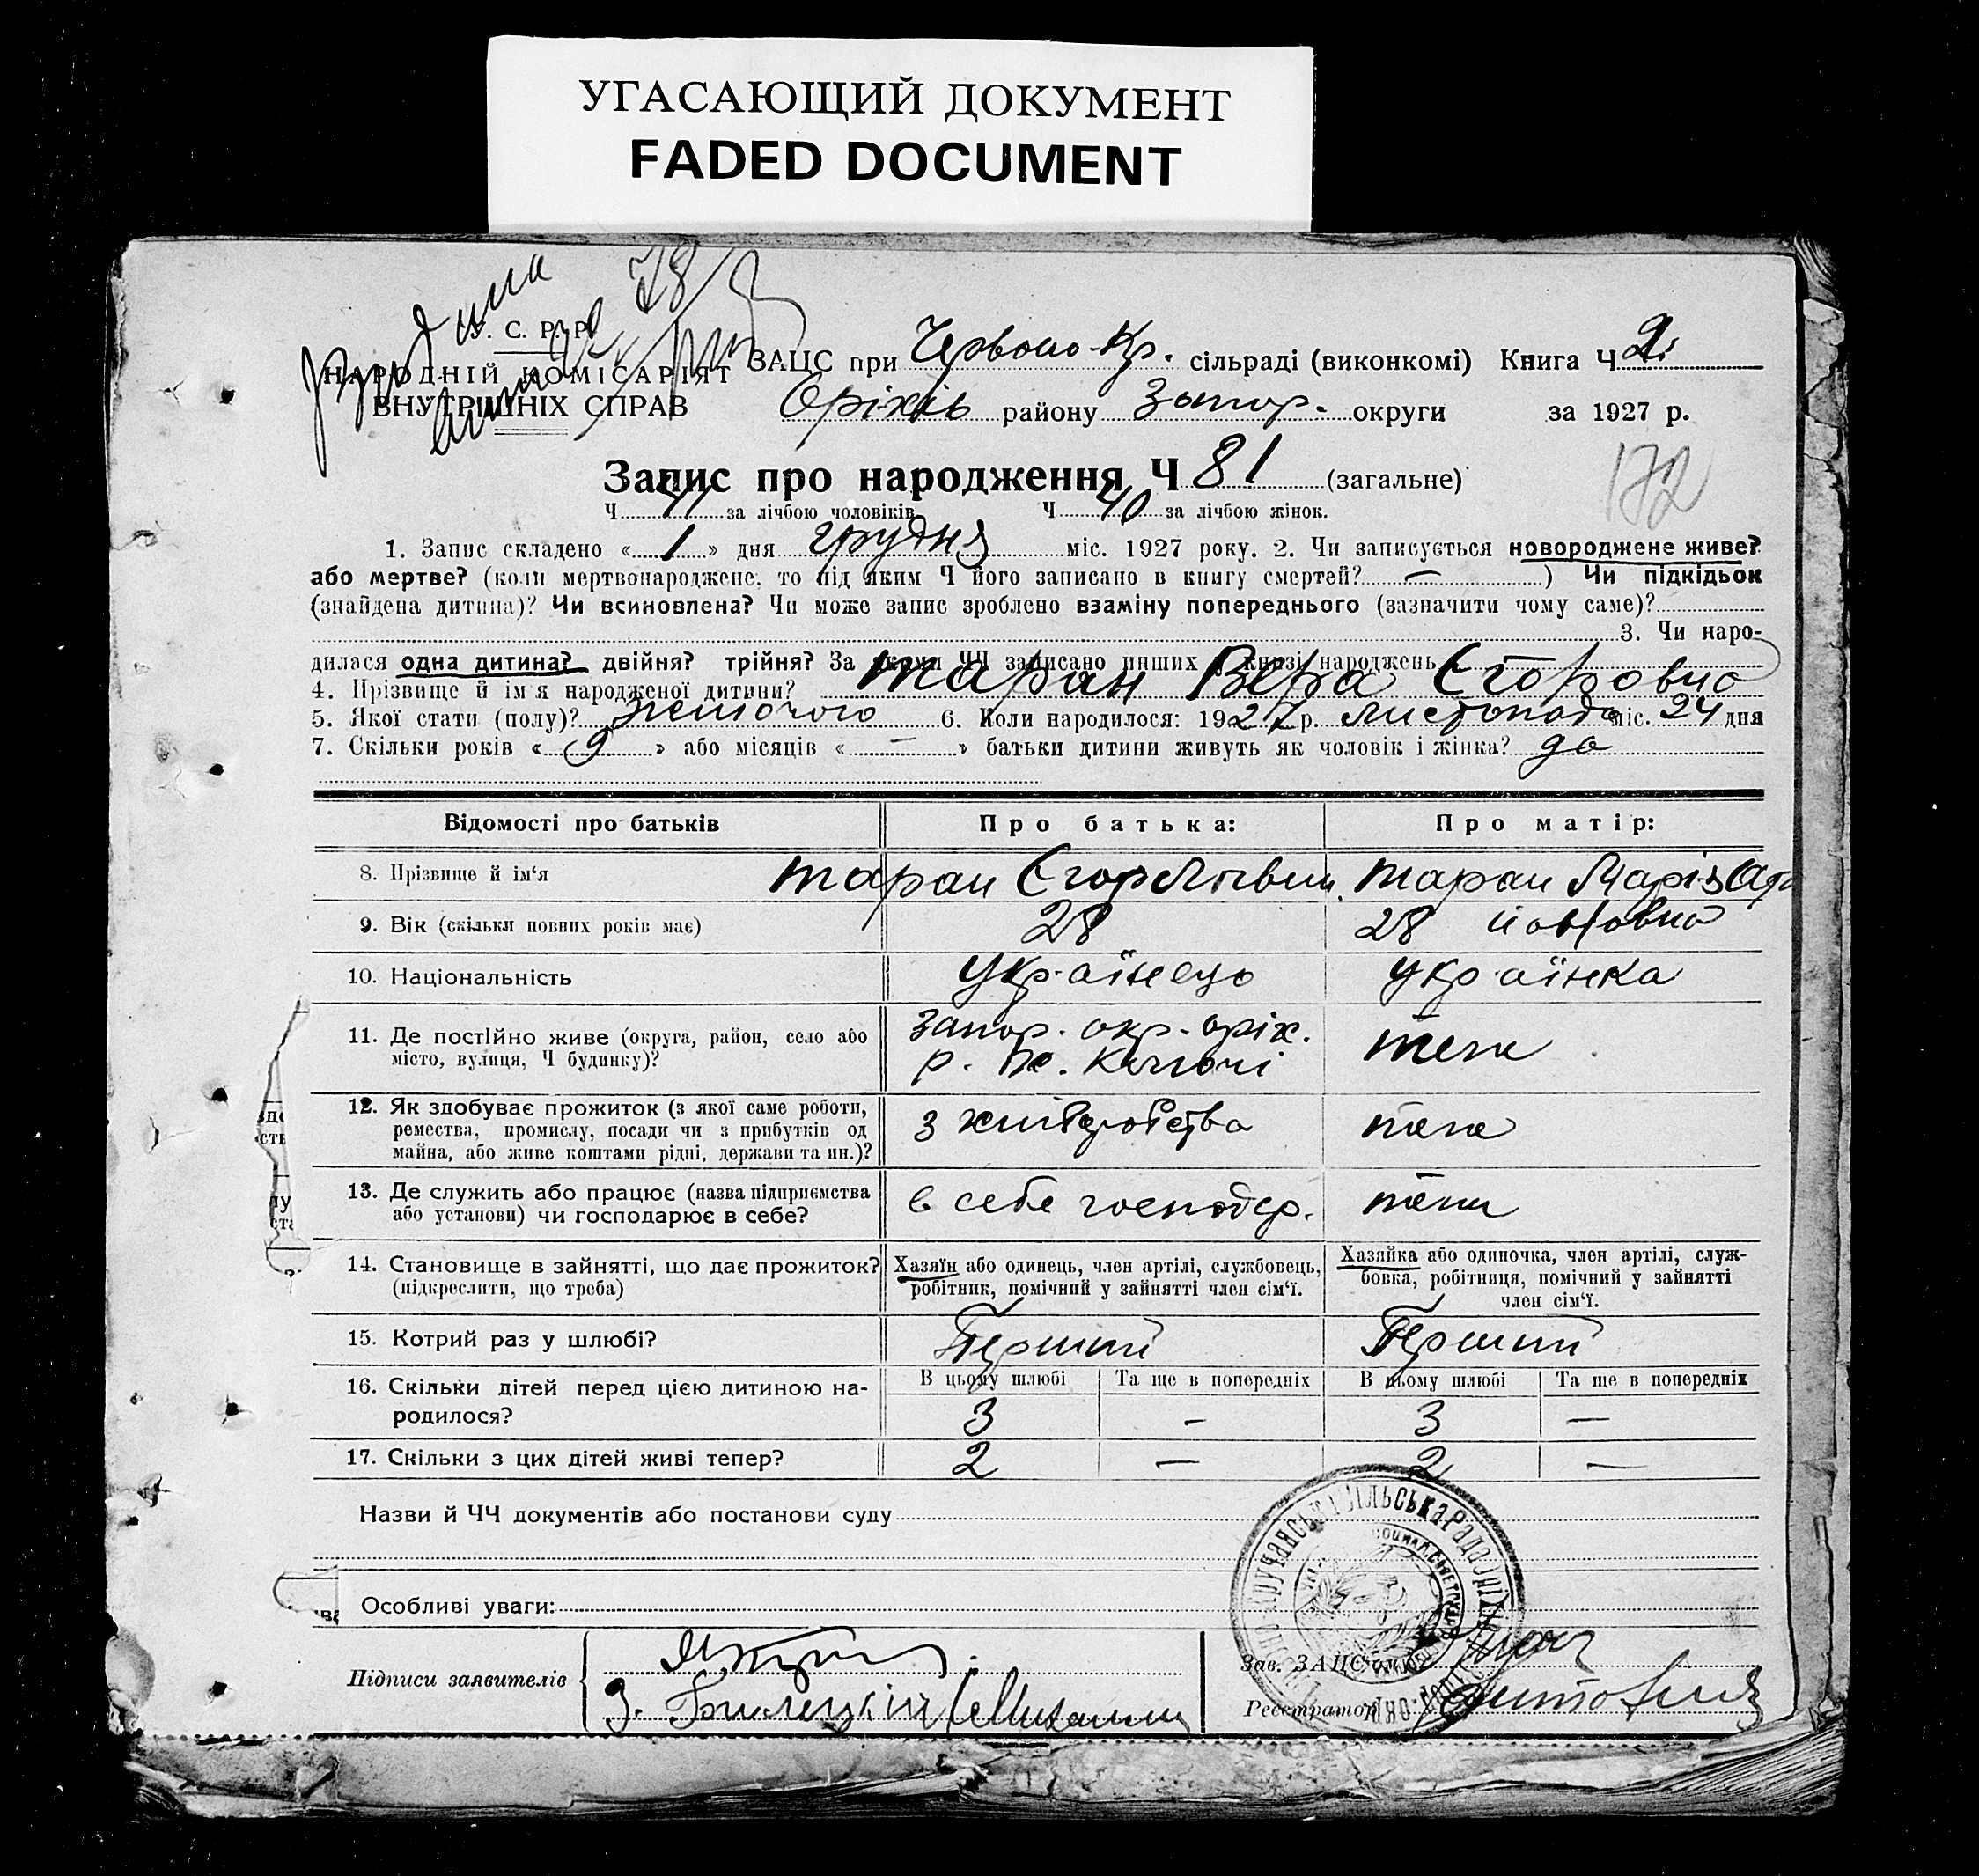 УГАСАЮЩИЙ ДОКУМЕНТ
FADED DOCUMENT
У. С. Р. Р.
НАРОДНІЙ КОМІСАРІЯТ
ВНУТРІШНІХ СПРАВ
ЗАЦС при Червоно-Кр. сільраді (виконкомі) Книга Ч 2.
Оріхів району Запор. округи за 1927 р.
172
Запис про народження Ч 81 (загальне)
Ч 41 за лічбою чоловіків Ч 40 за лічбою жінок.
1. Запис складено « 1 » дня грудня міс. 1927 року. 2. Чи записується новороджене живе?
або мертве? (коли мертвонароджене, то під яким Ч його записано в книгу смертей? — ) Чи підкідьок
(знайдена дитина)? Чи всиновлена? Чи може запис зроблено взаміну попереднього (зазначити чому саме)?
3. Чи наро-
дилася одна дитина? двійня? трійня? За якими ЧЧ записано инших в книзі народжень
4. Прізвище й ім'я народженої дитини? Таран Вера Єгоровна
5. Якої стати (полу)? жіночого 6. Коли народилося: 1927 р. листопада міс. 24 дня
7. Скільки років « 9 » або місяців « — » батьки дитини живуть як чоловік і жінка? да
Відомості про батьків Про батька: Про матір:
8. Прізвище й ім'я Таран Єгор Таран Марія
9. Вік (скільки повних років має) 28 28
10. Національність Українець Українка
11. Де постійно живе (округа, район, село або Запор. окр. оріх.
місто, вулиця, Ч будинку)? р. теж
12. Як здобуває прожиток (з якої саме роботи,
ремества, промислу, посади чи з прибутків од з хліборобства теж
майна, або живе коштами рідні, держави та ин.)?
13. Де служить або працює (назва підприємства в себе господар. теж
або установи) чи господарює в себе?
14. Становище в зайнятті, що дає прожиток? Хазяїн або одинець, член артілі, службовець, Хазяйка або одиночка, член артілі, служ-
(підкреслити, що треба) робітник, помічний у зайнятті член сім'ї. бовка, робітниця, помічний у зайнятті
член сім'ї.
15. Котрий раз у шлюбі? Перший Перший
16. Скільки дітей перед цією дитиною на- В цьому шлюбі Та ще в попередніх В цьому шлюбі Та ще в попередніх
родилося? 3 - 3 —
17. Скільки з цих дітей живі тепер? 2 — 2 —
Назви й ЧЧ документів або постанови суду
Особливі уваги:
Підписи заявителів
Зав. ЗАЦС'ом
Реєстратор